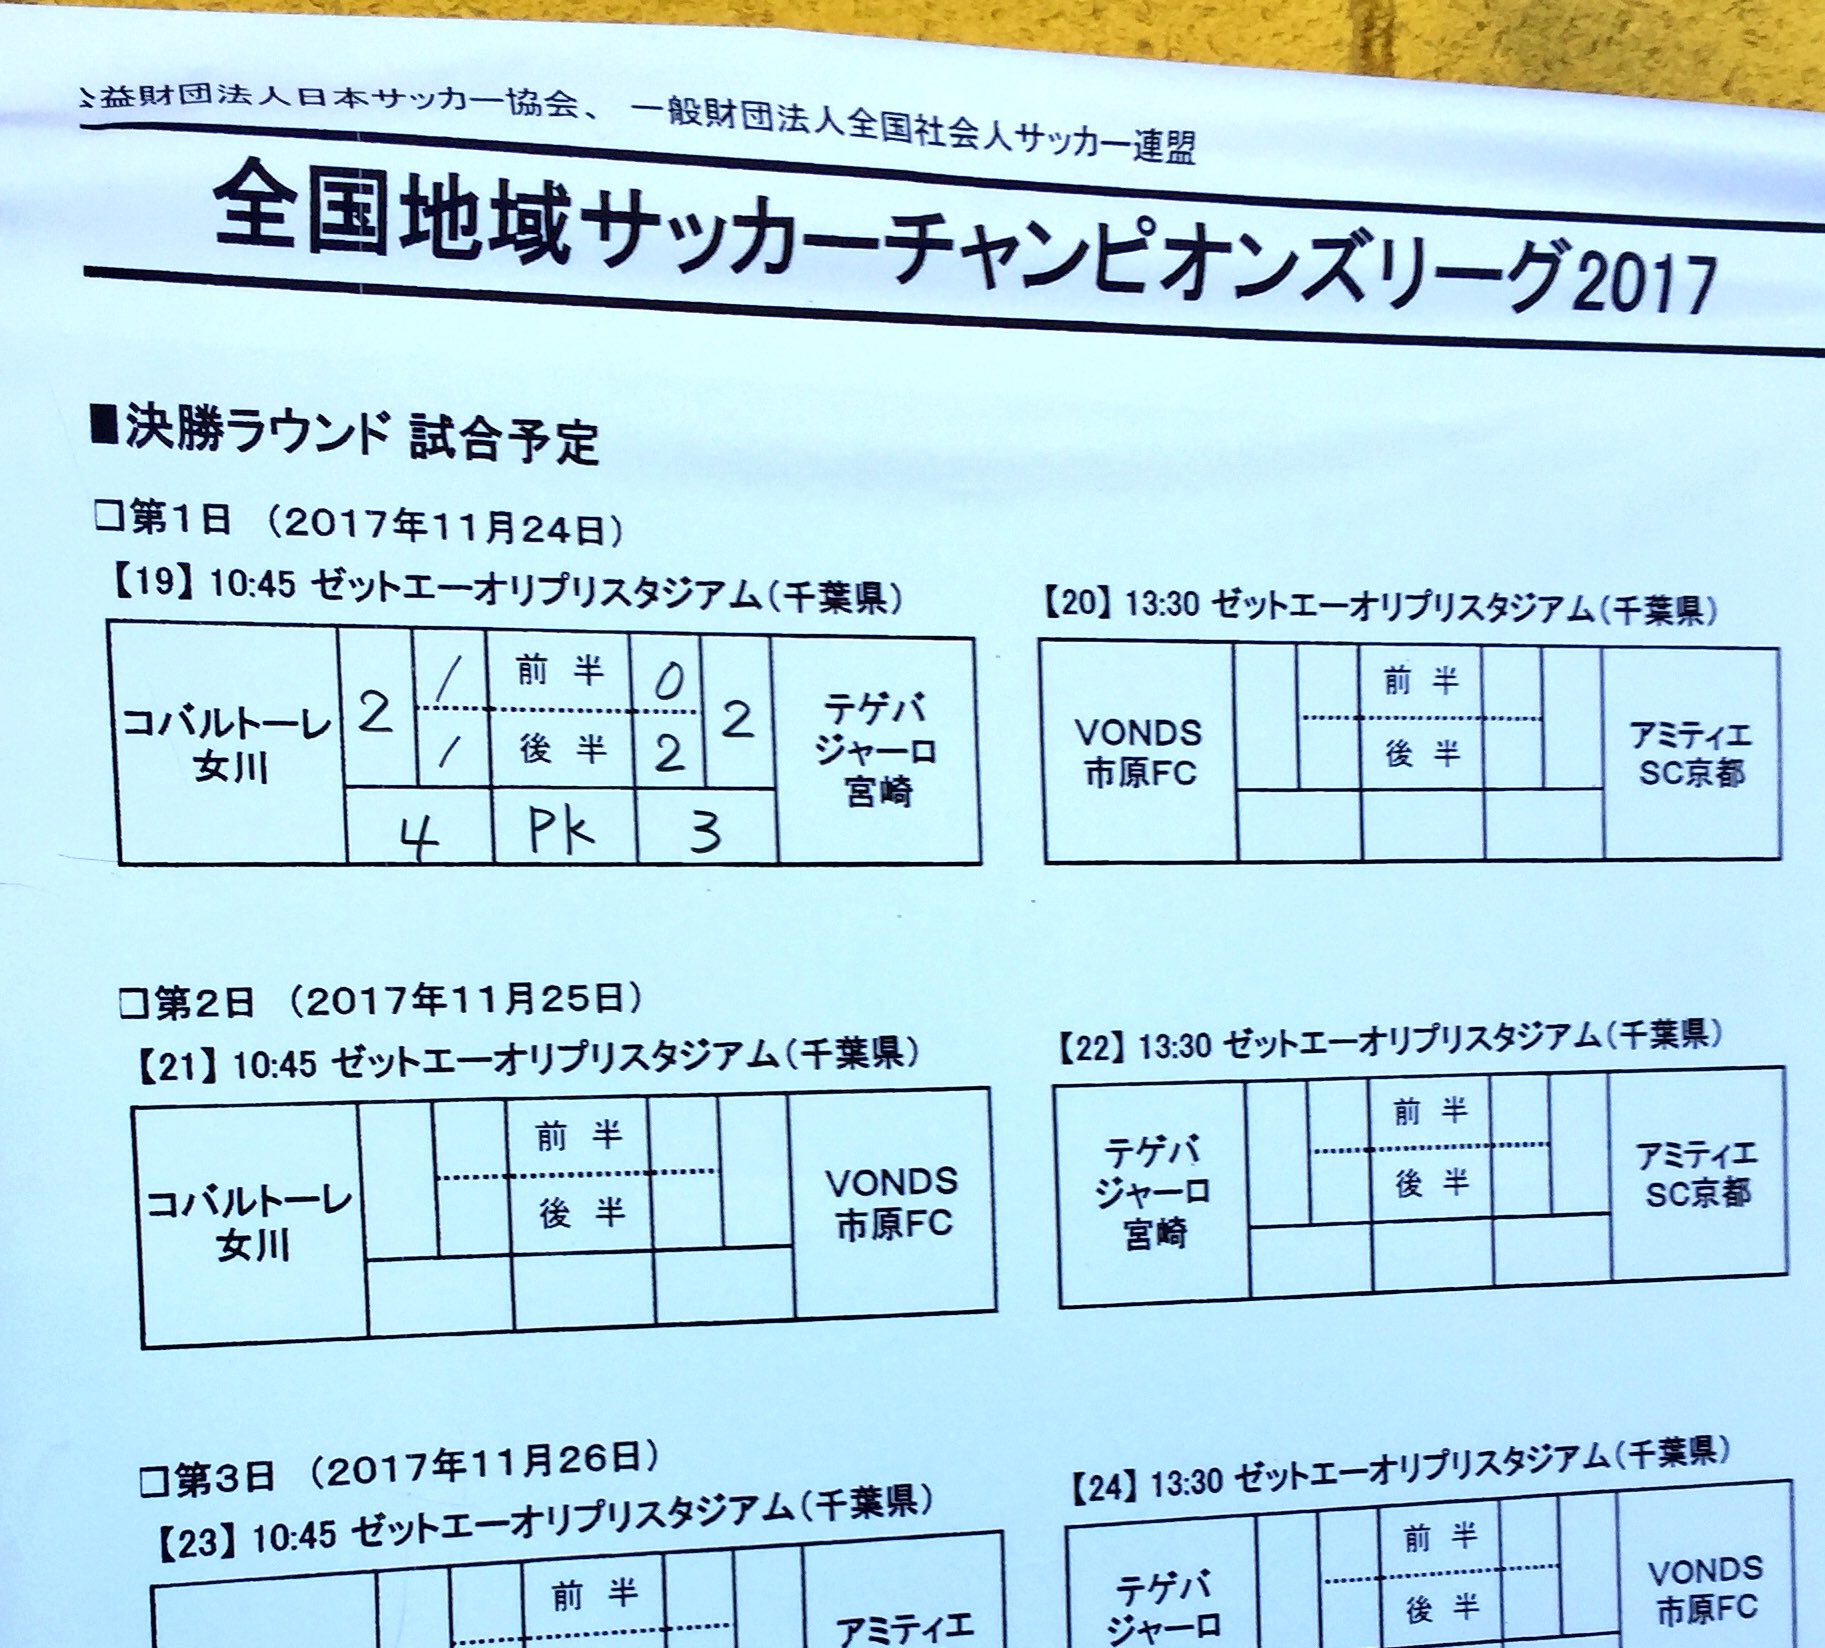 益財団法人日本サッカー協会、 一般財団法人全国社会人サッカー連盟
全国地域サッカーチャンピオンズリーグ2017
■決勝ラウンド 試合予定
□第1日 （2017年11月24日）
【19】 10:45 ゼットエーオリプリスタジアム（千葉県）
コバルトーレ
女川
2
1 前半 0
1 後半 2
2
4 PK 3
テゲバ
ジャーロ
宮崎
【20】 13:30 ゼットエーオリプリスタジアム（千葉県）
VONDS
市原FC
前半
後半
アミティエ
SC京都
□第2日 （2017年11月25日）
【21】 10:45 ゼットエーオリプリスタジアム（千葉県）
コバルトーレ
女川
前半
後半
VONDS
市原FC
【22】 13:30 ゼットエーオリプリスタジアム（千葉県）
テゲバ
ジャーロ
宮崎
前半
後半
アミティエ
SC京都
□第3日 （2017年11月26日）
【23】 10:45 ゼットエーオリプリスタジアム（千葉県）
前半
アミティエ
【24】 13:30 ゼットエーオリプリスタジアム（千葉県）
テゲバ
ジャーロ
前半
後半
VONDS
市原FC